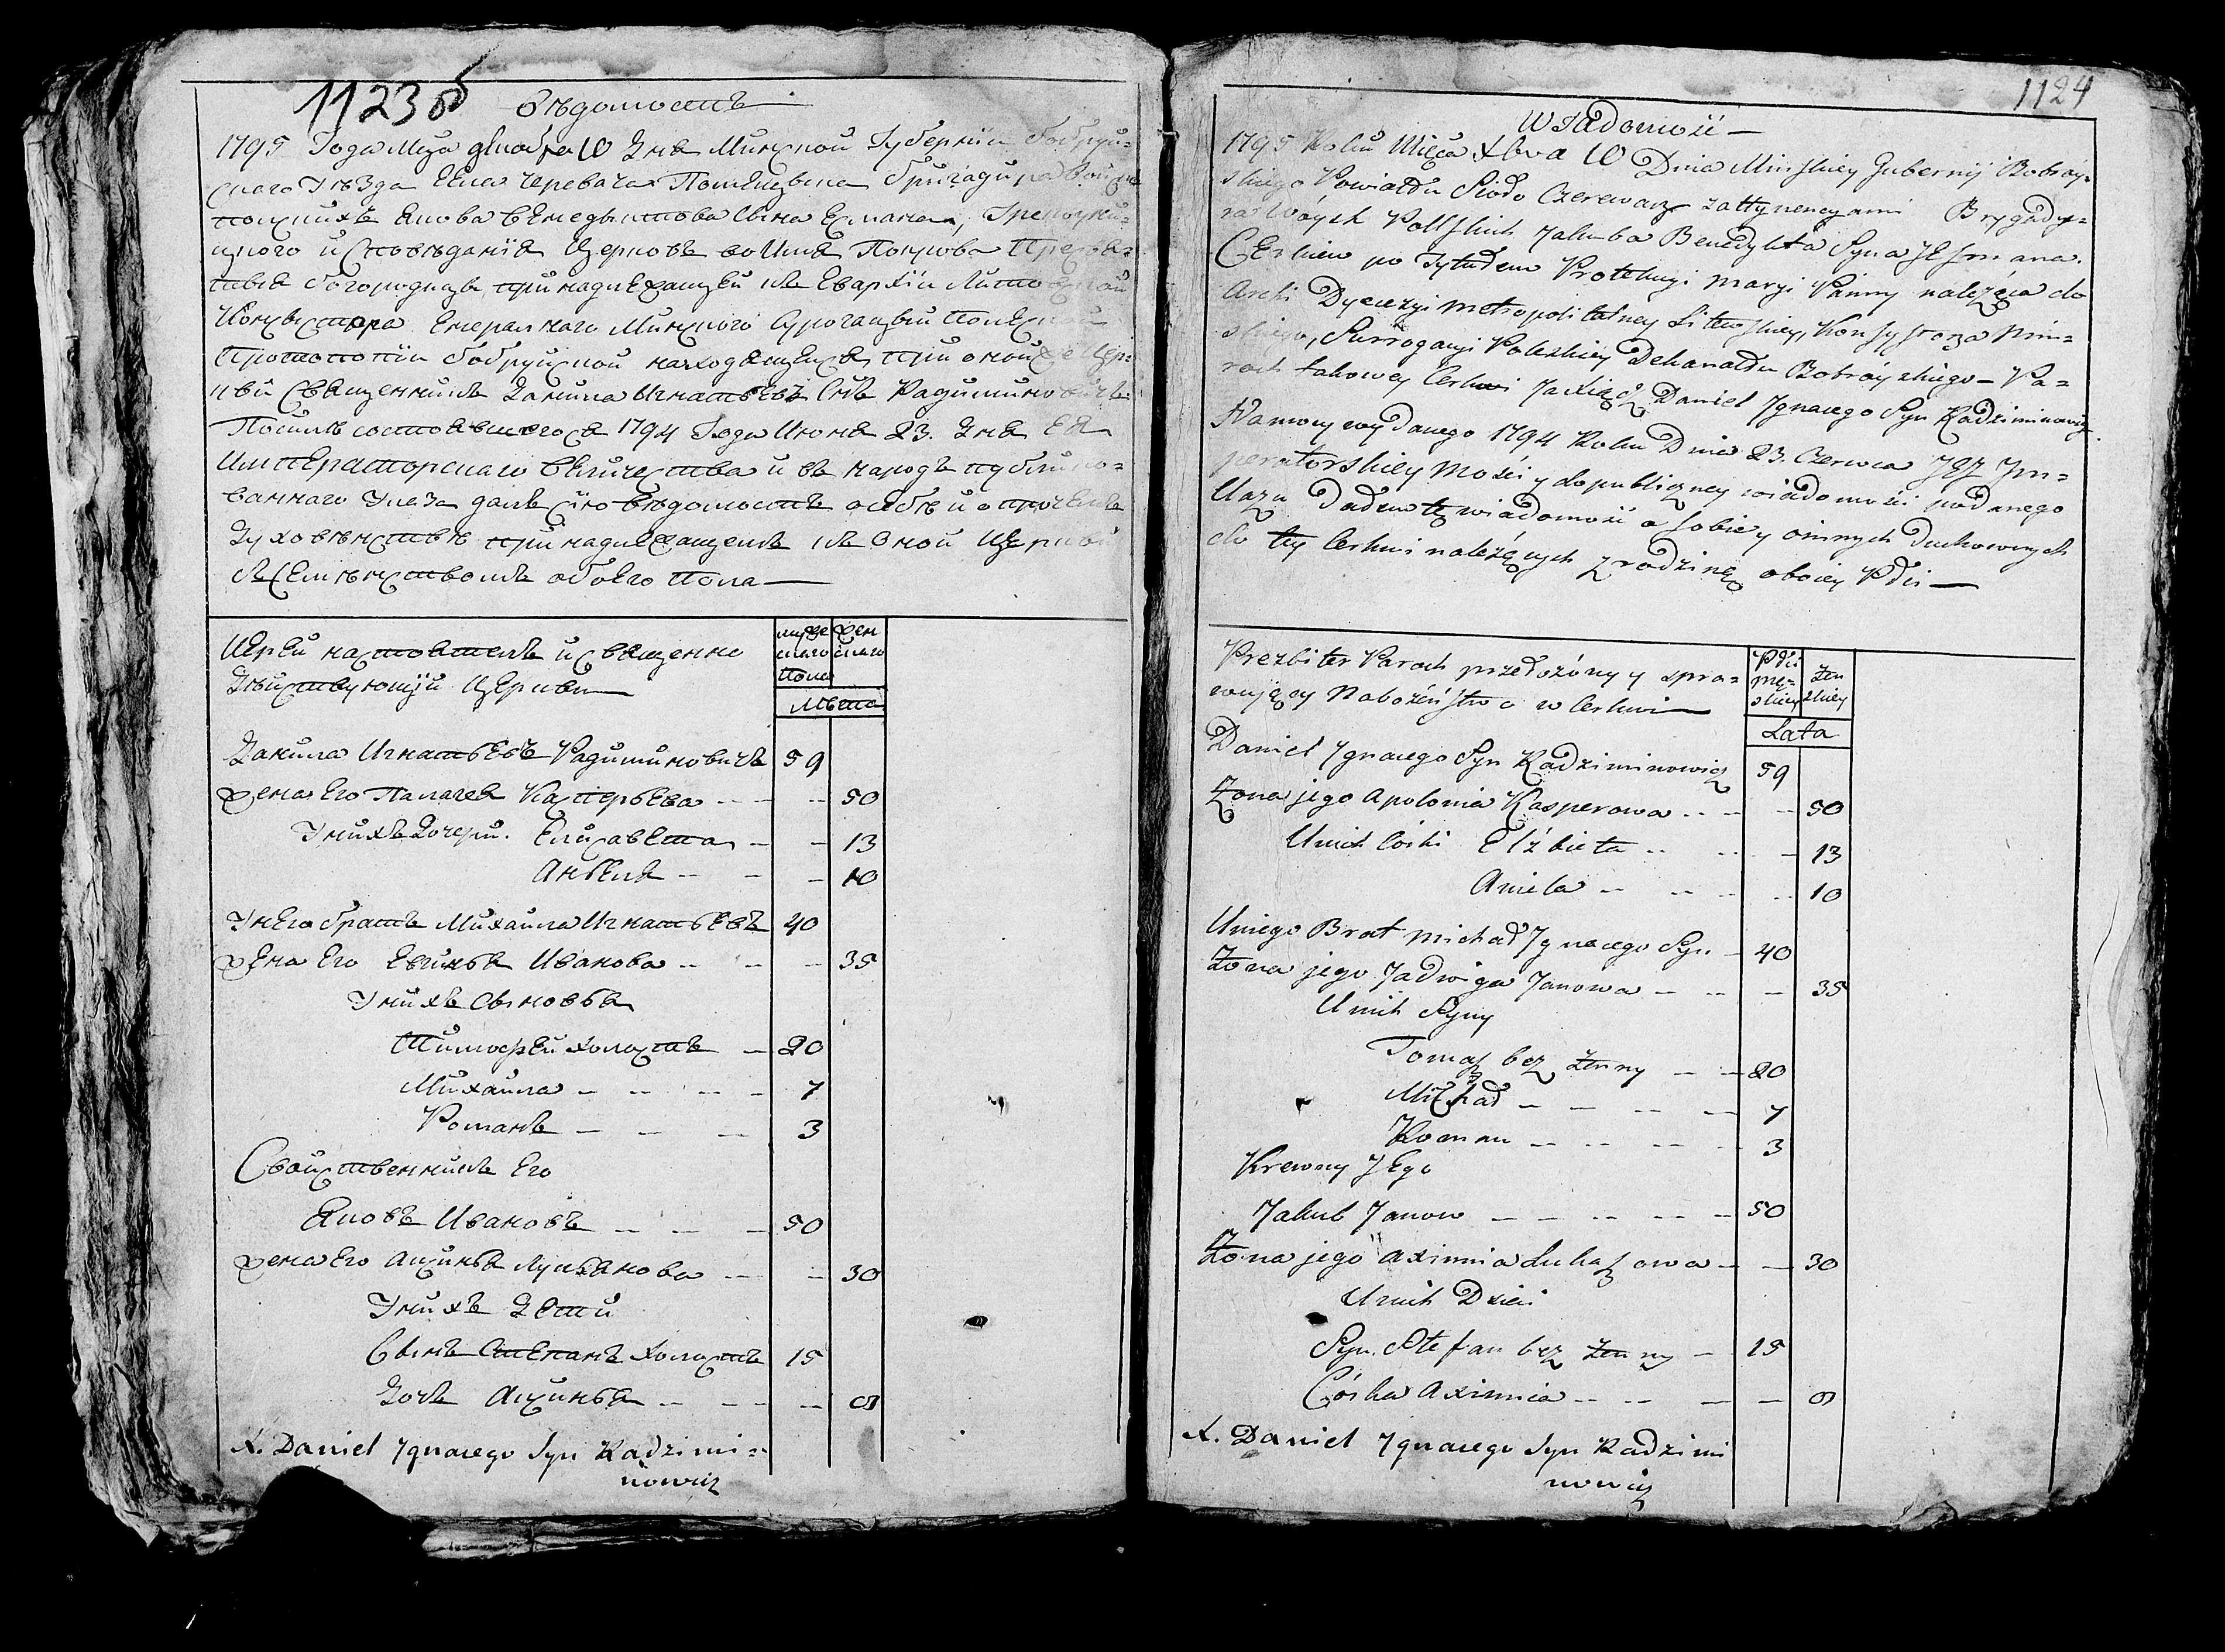 1123об
Вѣдомость
1795 Года Мца Декабря 10 Дня Минской Губернии Бобруй-
скаго Уѣзда Села Черевача Помещика бригадира войскъ
польскихъ Якова Бенедыктова Сына Есмана, Грекоуни-
цкого исповѣданія Церковь во Имя Покрова Пресвя-
тыя богородицы, принадлежащей къ Епархіи Литовской
Консистора Енеральнаго Минского Сурогацыи Полеской
Протопопіи бобруйской находящейся при оной же Цер-
кви Священникъ Данила Игнатьевъ Снъ Радиминовичъ
Посилѣ состоявшегося 1794 Года Июня 23. Дня ЕЯ
Императорскаго величества и въ народъ публико-
ваннаго Указа далъ сію вѣдомость о себѣ и о прочемъ
Духовѣнствѣ принадлежащемъ къ оной Церкви
съ Семѣиствомъ обоего пола
Иерей настоятель и священно
Дѣйствующій Церкви
муже
скаго
жен
скаго
пола
Лѣта
Данила Игнатьевъ Радиминовичъ 59
жена Его Палагея Касперьева -- -- 50
У нихъ дочери. Елисавета -- -- 13
Анъеля -- -- 10
У него братъ Михаила Игнатьевъ 40
жена Его Евгинья Иванова -- -- 35
У нихъ Сыновья
Тимофей холостъ -- 20
Михаила -- -- 7
Романъ -- -- 3
Свойственникъ Его
Яковъ Ивановъ -- -- 50
жена Его Аксинья Лукьянова -- -- 30
У нихъ Дети
Сынъ Степанъ холостъ 15
Дочь Аксинья -- --
X. Daniel Ignacego Syn Radzimi-
nowicz
1124
Wiadomość
1795 Roku Mięca Xbra 10 Dnia Minskiey Gubernij Bobróy-
skiego Powiatu Sioło Czerewacz zattynencyami Brygady-
ra Woysk Polskich Jakuba Benedykta Syna Jesmana.
Cerkiew po Tytułem Protekcyi Maryi Panny należąca do
Archi Dyecezyi Metropolitalney Litewskiey, Konsystorza Min-
skiego, Surrogacyi Poleskiey Dekanatu Bobróyskiego - Pa-
roch takowey Cerkwi Ja xiądz Daniel Ignacego Syn Radziminowicz
Namocy wydanego 1794 Roku Dnia 23. Czerwca Jey Im-
peratorskiey Mości y do publiczney wiadomości podanego
Ukazu Dałem tę wiadomość o sobie y oinnych Duchownych
do tey Cerkwi należących z rodziną oboiey Płci
Prezbiter Paroch przełożóny y spra-
wujący Nabożeństwo w Cerkwi
Płci
mę-
skiey
żeń
skiey
Lata
Daniel Ignacego Syn Radziminowicz 59
Żona jego Apolonia Kasperowa -- -- 50
Unich Córki Elżbieta -- -- 13
Aniela -- -- 10
Uniego Brat Michał Ignacego Syn - 40
Żona jego Jadwiga Janowa -- -- 35
Unich Syny
Tomasz bez żenny -- 20
Michał -- -- 7
Roman -- -- 3
Krewny Jego
Jakub Janow -- -- 50
Żona jego Aximnia Łukaszowa -- 30
Unich Dzieci
Syn. Stefan bez żenny - 15
Córka Aximnia -- --
X. Daniel Ignacego Syn Radzimi
nowicz